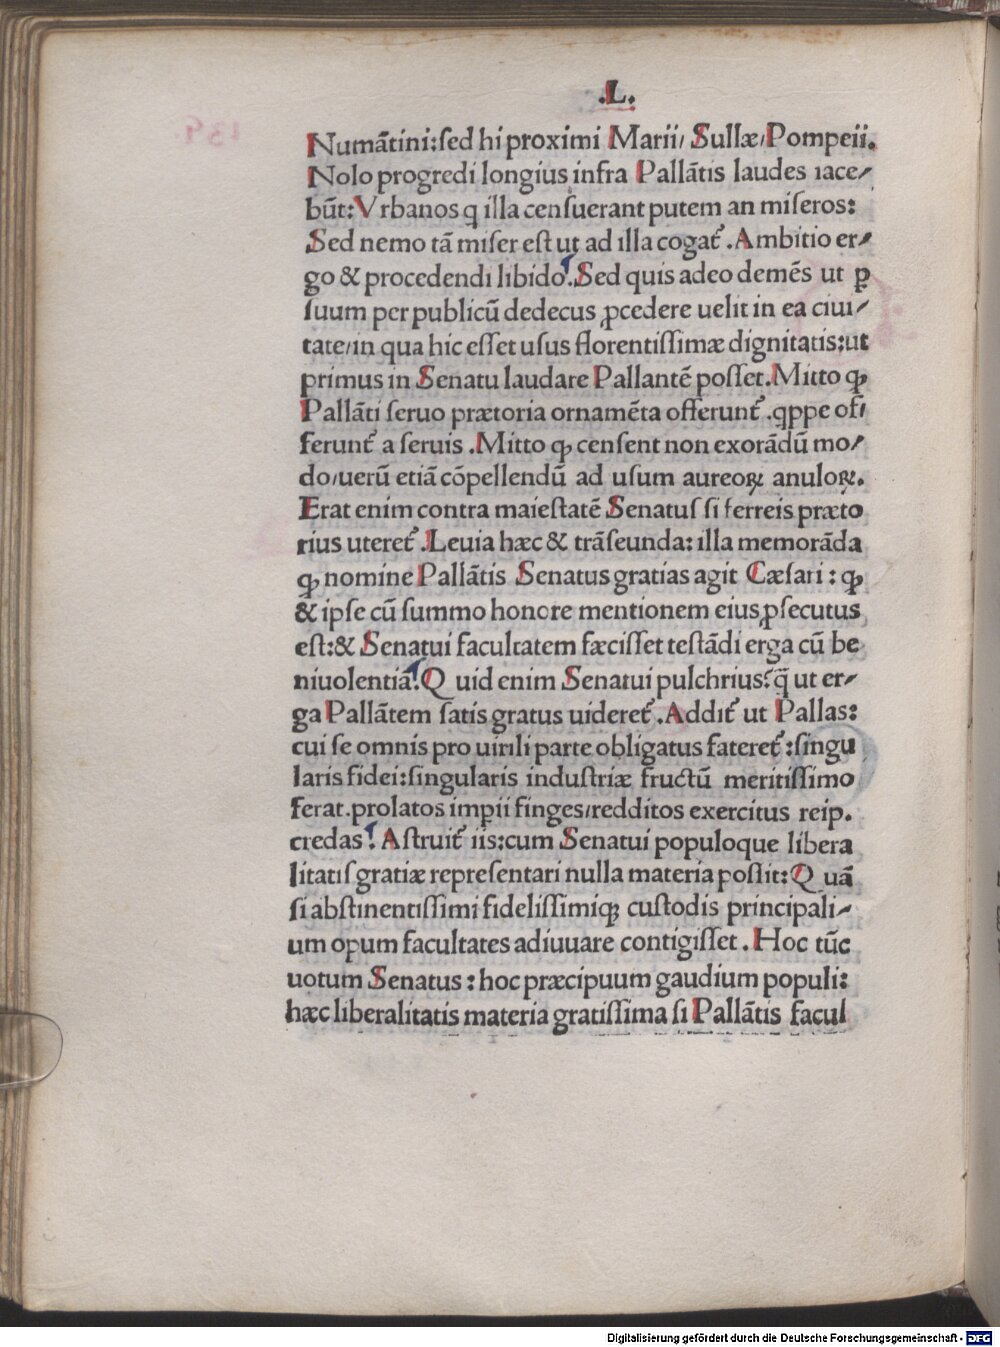 .L.
Numãtini:sed hi proximi Marii/ Sullæ/Pompeii.
Nolo progredi longius infra Pallãtis laudes ıace/
bũt:Vrbanos q illa censuerant putem an miseros:
Sed nemo tã miser est ut ad illa cogat᷑.Ambitio er/
go & procedendi libido?Sed quis adeo demẽs ut ꝑ
ſuum per publicũ dedecus ꝓcedere uelit in ea ciui/
tate/in qua hic eſſet uſus florentiſſimæ dignitatis:ut
primus in Senatu laudare Pallantẽ poſſet.Mitto ꝙ
Pallãti ſeruo prætoria ornamẽta offerunt᷑.qppe ofi
ferunt᷑ a ſeruis.Mitto ꝙ cenſent non exorãdũ mo/
do/uerũ etiã cõpellendũ ad uſum aureoꝝ anuloꝝ.
Erat enim contra maieſtatẽ Senatuſ ſi ferreis præto
rius uteret᷑.Leuia hæc & trãſeunda:illa memorãda
ꝙ nomine Pallãtis Senatus gratias agit Cæſari:ꝙ
& ipſe cũ ſummo honore mentionem eius ꝓſecutus
eſt:& Senatui facultatem fæciſſet teſtãdi erga cũ be
niuolentiã?Q uid enim Senatui pulchrius?q̃ ut er/
ga Pallãtem ſatis gratus uideret᷑.Addit᷑ ut Pallas:
cui ſe omnis pro uirili parte obligatus fateret᷑:ſingu
laris fidei:ſingularis induſtriæ fructũ meritiſſimo
ferat.prolatos impii finges/redditos exercitus reip.
credas?Aſtruit᷑ iis:cum Senatui populoque libera
litatiſ gratiæ repreſentari nulla materia poſſit:Q uã
ſi abſtinentiſſimi fideliſſimiqꝫ cuſtodis principali/
um opum facultates adiuuare contigiſſet.Hoc tũc
uotum Senatus:hoc præcipuum gaudium populi:
hæc liberalitatis materia gratiſſima ſi Pallãtis facul
Digitalisierung gefördert durch die Deutsche Forschungsgemeinschaft - DFG